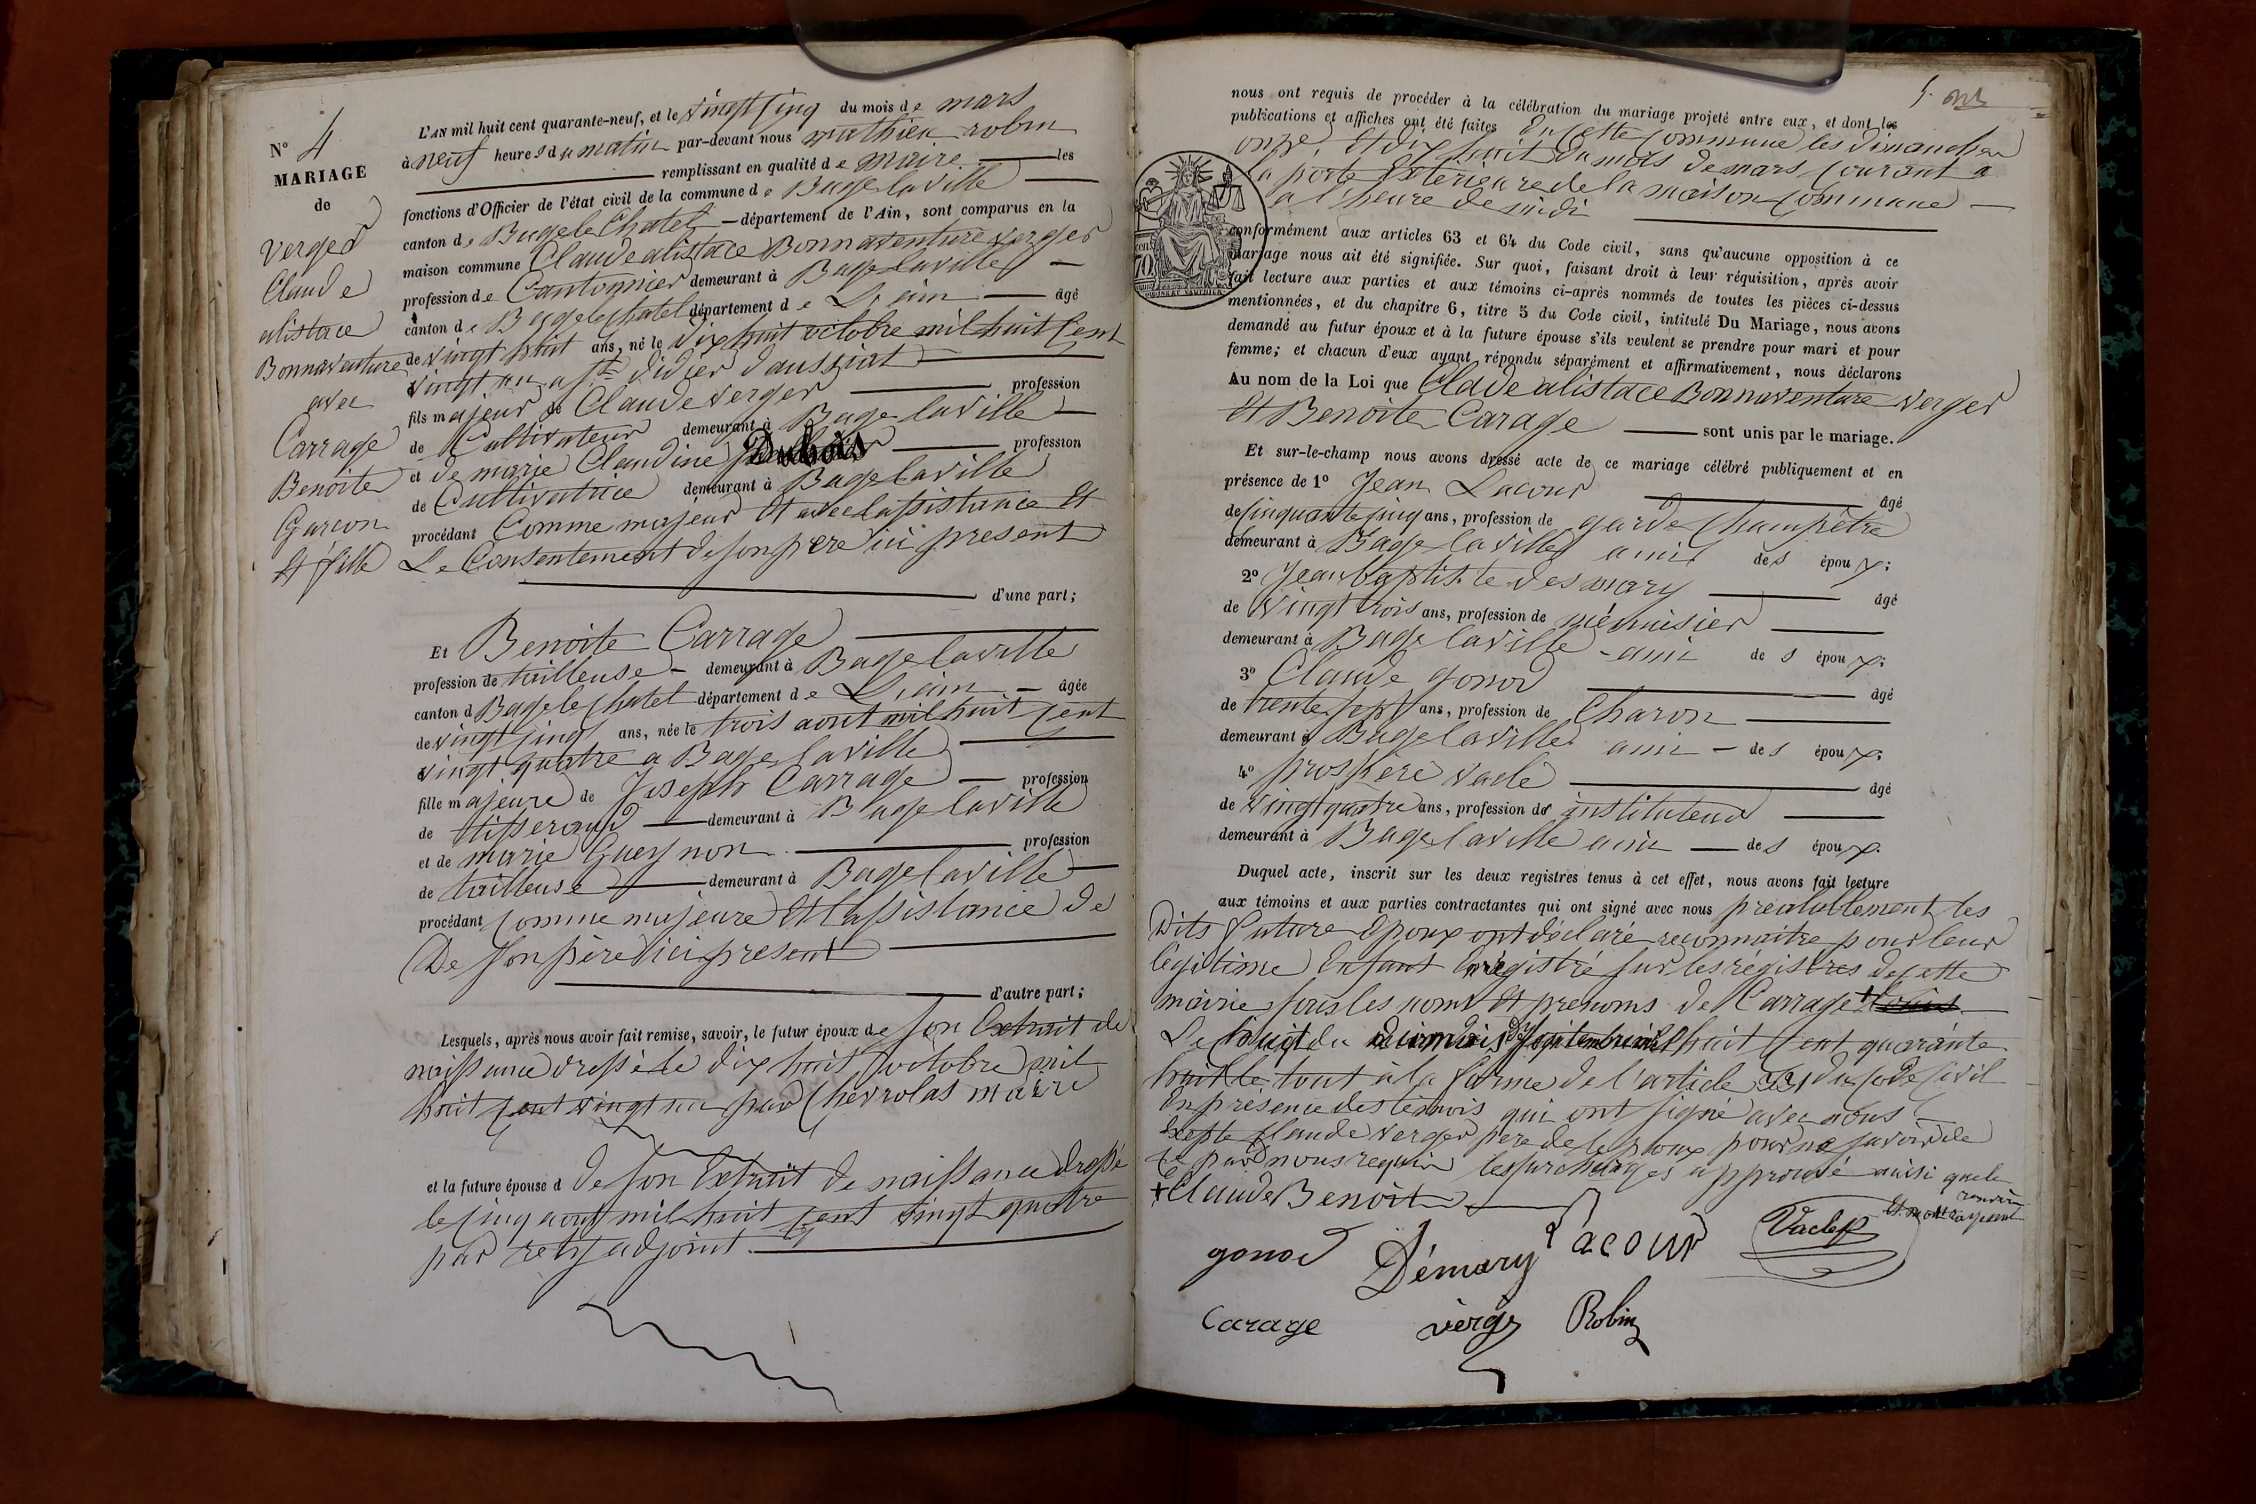 N° 4
MARIAGE
de
Verger
Claude
alistace
Bonnaventure
avec
Carrage
Benoite
Garcon
et fille
L'AN mil huit cent quarante-neuf, et le vingt cinq du mois de mars
à neuf heures du matin par-devant nous mathieu robin
remplissant en qualité de maire les
fonctions d'Officier de l'état civil de la commune de Bagé la ville
canton de Bagé le Chatel département de l'Ain, sont comparus en la
maison commune Claude alistace Bonnaventure Verger
profession de Cantonnier demeurant à Bagé la ville
canton de Bagé le Chatel département de L'ain âgé
de vingt huit ans, né le dix huit octobre mil huit cent
vingt un a st didier d'aussiat
fils majeur de Claude Verger profession
de Cultivateur demeurant à Bagé la ville
et de marie Claudine Dubois profession
de Cultivatrice demeurant à Bagé la ville
procédant Comme majeur et avec lassistance et
Le Consentement de son pere ici present
d'une part;
Et Benoite Carrage
profession de tailleuse demeurant à Bagé la ville
canton d Bagé le Chatel département de L'ain âgée
de vingt cinq ans, née le trois aout mil huit cent
vingt quatre a Bagé la ville
fille majeure de Joseph Carrage profession
de tisserand demeurant à Bagé la ville
et de marie Gueynon profession
de tailleuse demeurant à Bagé la ville
procédant comme majeure et lassistance de
De son père ici present
d'autre part;
Lesquels, après nous avoir fait remise, savoir, le futur époux de son Extrait de
naissance dressé le dix huit octobre mil
huit cent vingt un par Chevrolas maire
et la future épouse d de son Extrait de naissance dressé
le cinq aout mil huit cent vingt quatre
par adjoint
nous ont requis de procéder à la célébration du mariage projeté entre eux, et dont les
publications et affiches ont été faites en cette commune les dimanches
onze et dix huit du mois de mars courant a
la porte exterieure de la maison commune
a l'heure de midi
conformément aux articles 63 et 64 du Code civil, sans qu'aucune opposition à ce
mariage nous ait été signifiée. Sur quoi, faisant droit à leur réquisition, après avoir
fait lecture aux parties et aux témoins ci-après nommés de toutes les pièces ci-dessus
mentionnées, et du chapitre 6, titre 5 du Code civil, intitulé Du Mariage, nous avons
demandé au futur époux et à la future épouse s'ils veulent se prendre pour mari et pour
femme; et chacun d'eux ayant répondu séparément et affirmativement, nous déclarons
Au nom de la Loi que Clade alistace Bonnaventure Verger
et Benoite Carage sont unis par le mariage.
Et sur-le-champ nous avons dressé acte de ce mariage célébré publiquement et en
présence de 1° Jean Lacour âgé
de cinquante cinq ans, profession de garde Champêtre
demeurant à Bagé la ville ami des époux;
2° Jean baptiste desmary âgé
de vingt trois ans, profession de ménuisier
demeurant à Bagé la ville ami des époux;
3° Claude gonod âgé
de trente sept ans, profession de Charon
demeurant à Bagé la ville ami des époux;
4° prospere vaclé âgé
de vingt quatre ans, profession de instituteur
demeurant à Bagé la ville ami des époux.
Duquel acte, inscrit sur les deux registres tenus à cet effet, nous avons fait lecture
aux témoins et aux parties contractantes qui ont signé avec nous prealablement les
Dits future Epoux ont déclaré reconnaitre pour leur
légitime Enfant Enrégistré sur les régistres de cette
mairie sous les noms et prenoms de Carrage +
Le huit du mois de septembre mil huit cent quarante
huit le tout à la forme de l'article 331 du Code Civil
En presence des témois qui ont signé avec nous
Excepté Claude Verger pere de Lepoux pour ne savoir le
par nous requis les surcharges approuvé ainsi que le
renvoi
+ Claude Benoit
gonod Démary Lacour Vaclé
Carage verge Robin